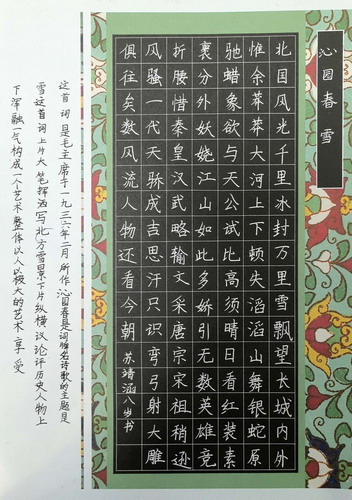 沁园春 雪
北国风光千里冰封万里雪飘望长城内外
惟余莽莽大河上下顿失滔滔山舞银蛇原
驰蜡象欲与天公试比高须晴日看红装素
裹分外妖娆江山如此多娇引无数英雄竞
折腰惜秦皇汉武略输文采唐宗宋祖稍逊
风骚一代天骄成吉思汗只识弯弓射大雕
俱往矣数风流人物还看今朝 苏靖涵八岁书
这首词是毛主席于一九三六年二月所作沁园春是词牌名诗歌的主题是
雪这首词上片大笔挥洒写北方雪景下片纵横议论评历史人物上
下浑融一气构成一个艺术整体以人以极大的艺术享受